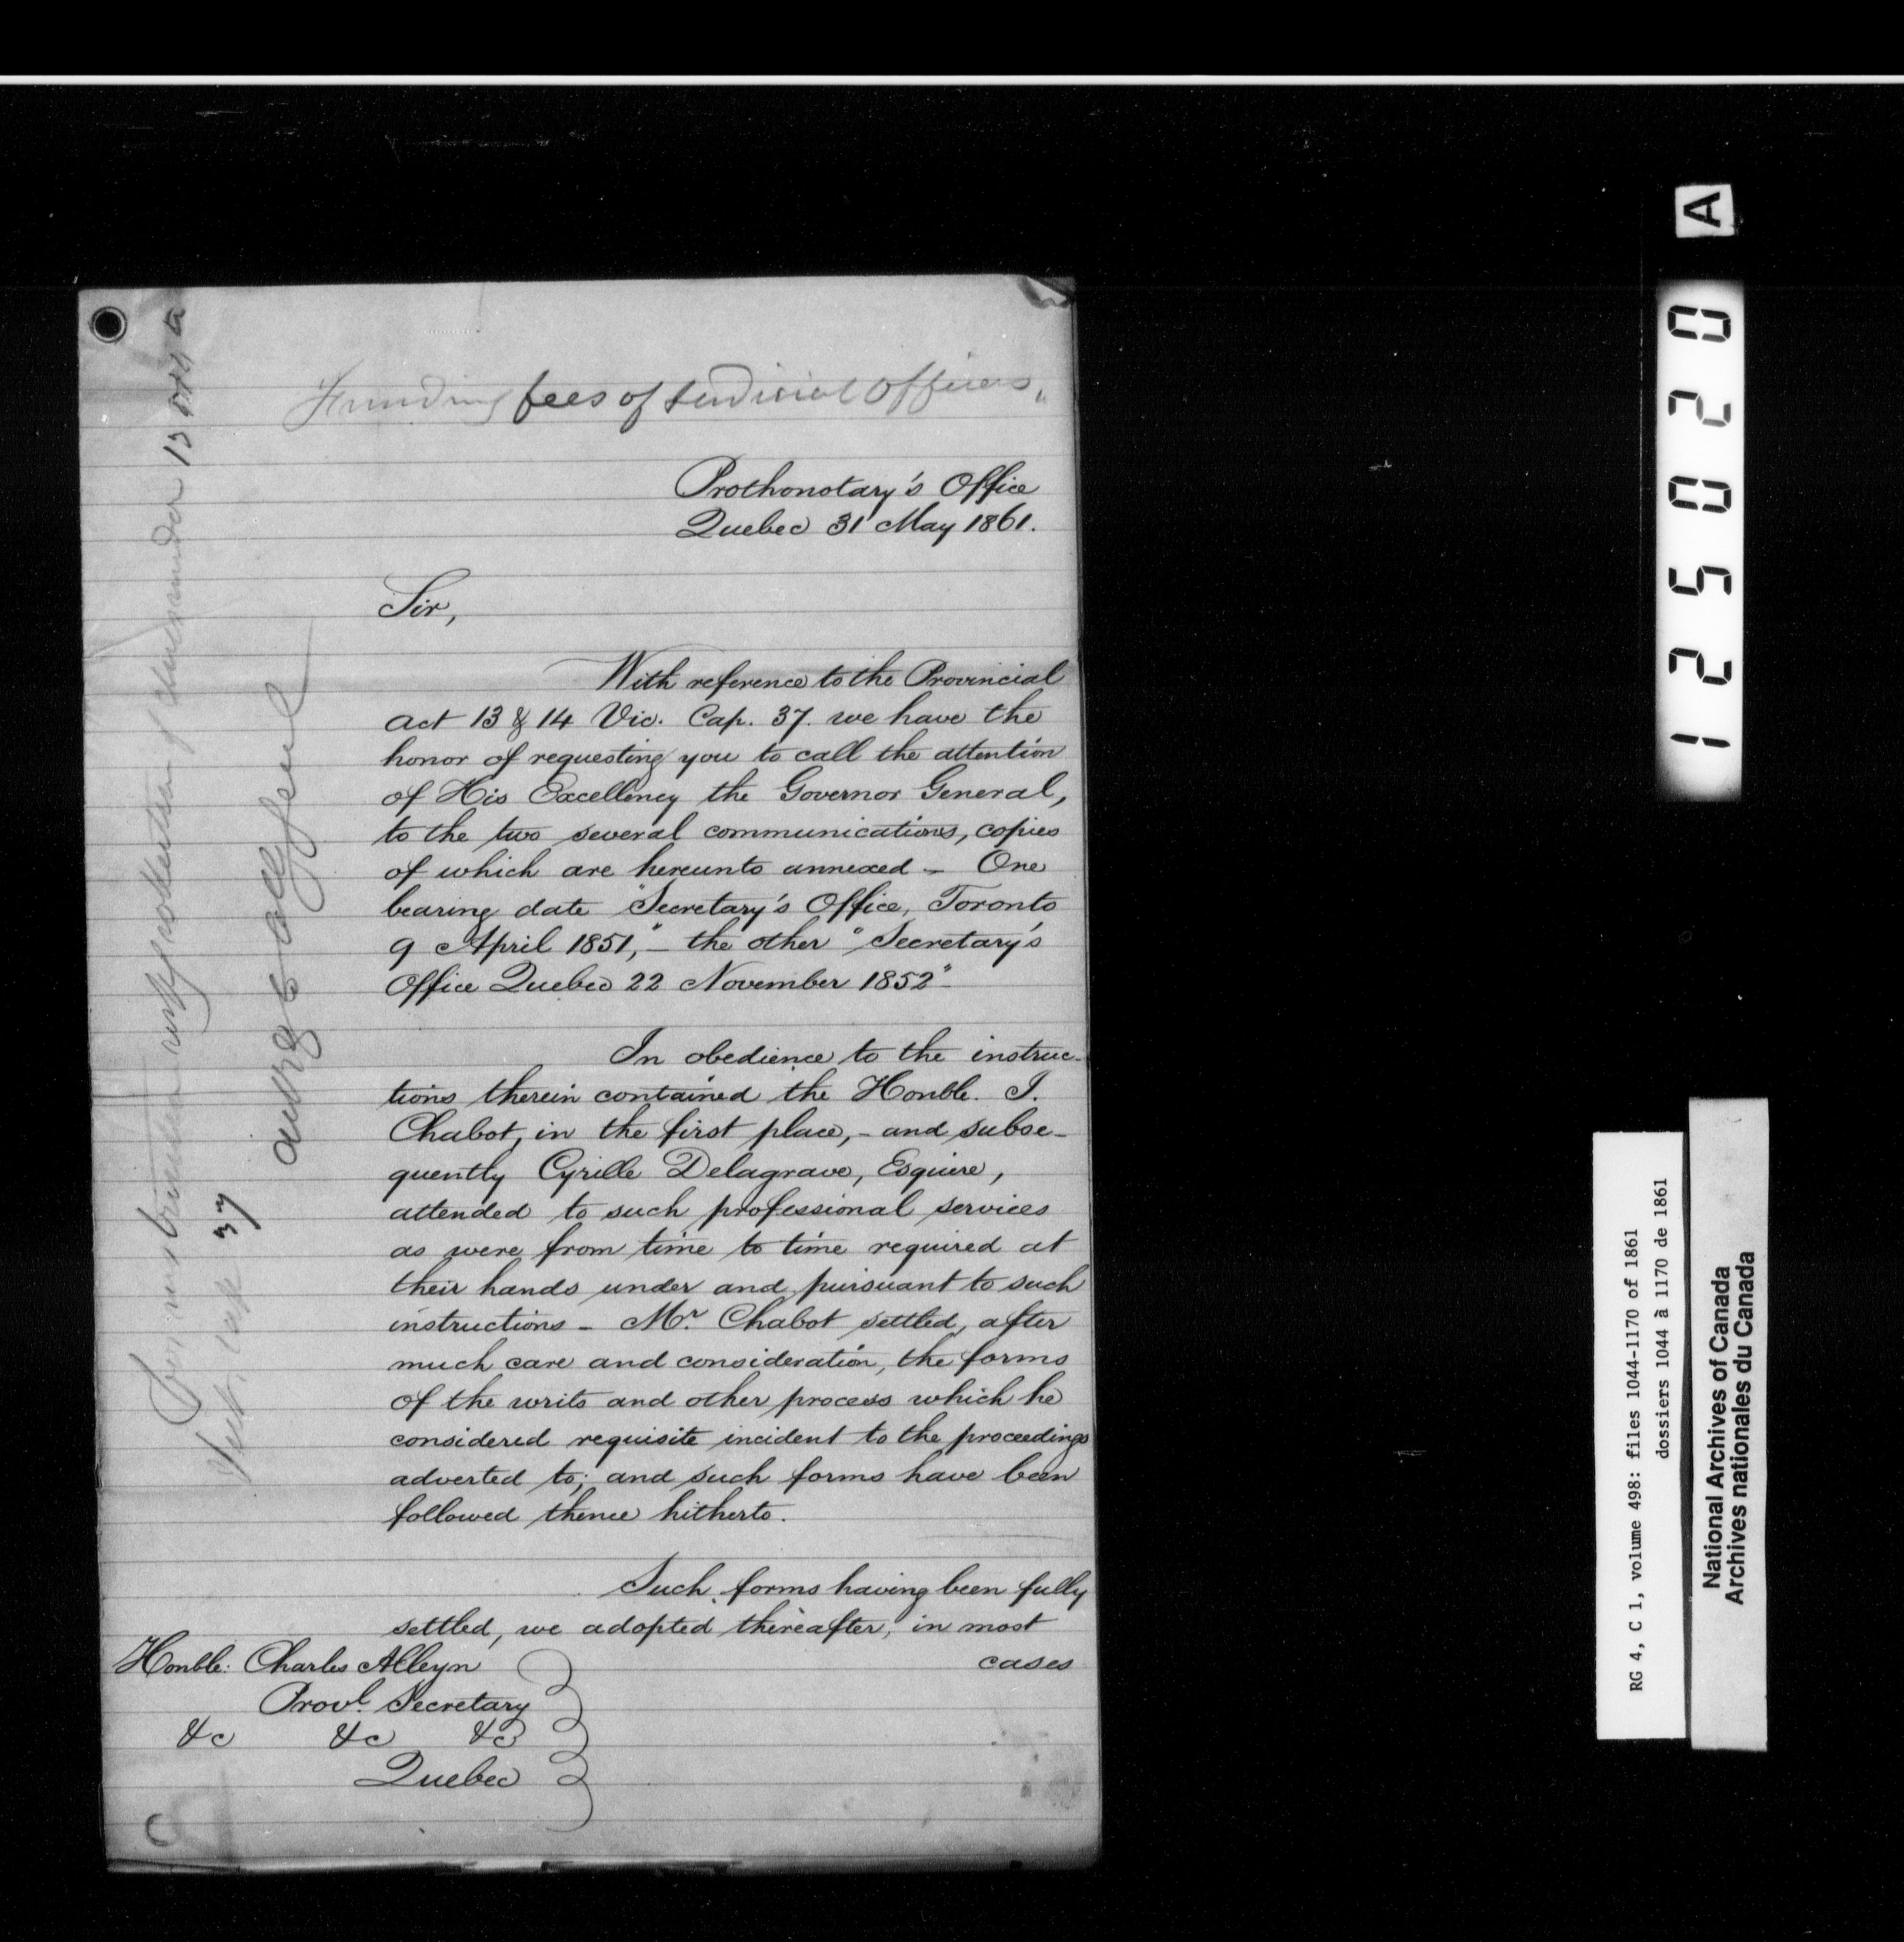 Funding fees of Judicial Officers.
Prothonotary's Office
Quebec 31 May 1861.
Sir,
With reference to the Provincial
act 13 & 14 Vic. Cap. 37. we have the
honor of requesting you to call the attention
of His Excellency the Governor General,
to the two several communications, copies
of which are hereunto annexed - One
bearing date "Secretary's Office, Toronto
9 April 1851," - the other "Secretary's
Office Quebec 22 November 1852"-
In obedience to the instruc-
tions therein contained the Honble. J.
Chabot, in the first place, - and subse-
quently Cyrille Delagrave, Esquire,
attended to such professional services
as were from time to time required at
their hands under and pursuant to such
instructions - Mr. Chabot settled, after
much care and consideration, the forms
of the writs and other process which he
considered requisite incident to the proceedings
adverted to; and such forms have been
followed thence hitherto.
Such forms having been fully
settled, we adopted thereafter, in most
cases
Honble: Charles Alleyn
Provl. Secretary
&c &c &c
Quebec
37
A
125020
RG 4, C 1, volume 498: files 1044-1170 of 1861
dossiers 1044 à 1170 de 1861
National Archives of Canada
Archives nationales du Canada